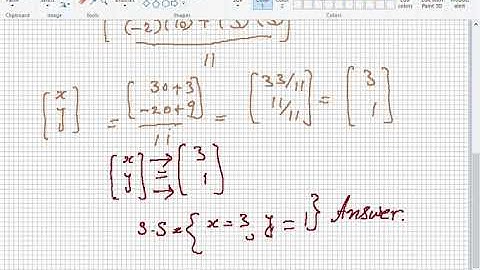 Clipboard Image Tools Shapes Colors
(-2)(10) + (3)(3)
11
[x y] = [30+3 -20+9] / 11 = [33/11 11/11] = [3 1]
[x y] → = → [3 1]
S.S = { x = 3, y = 1 } Answer.